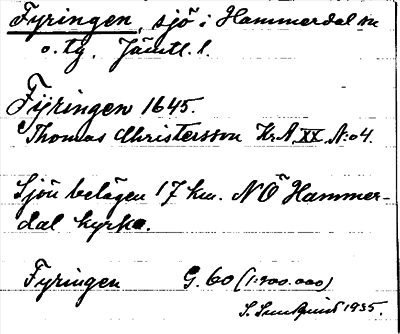 Fyringen, sjö i Hammerdal sn
o. tg. Jämtl. l.
Fijringen 1645.
Thomas Christersson Kr.A. XX. N:o 4.
Sjön belägen 17 km. NÖ Hammer-
dal kyrka.
Fyringen G. 60 (1:200.000)
S. Sundquist 1935.